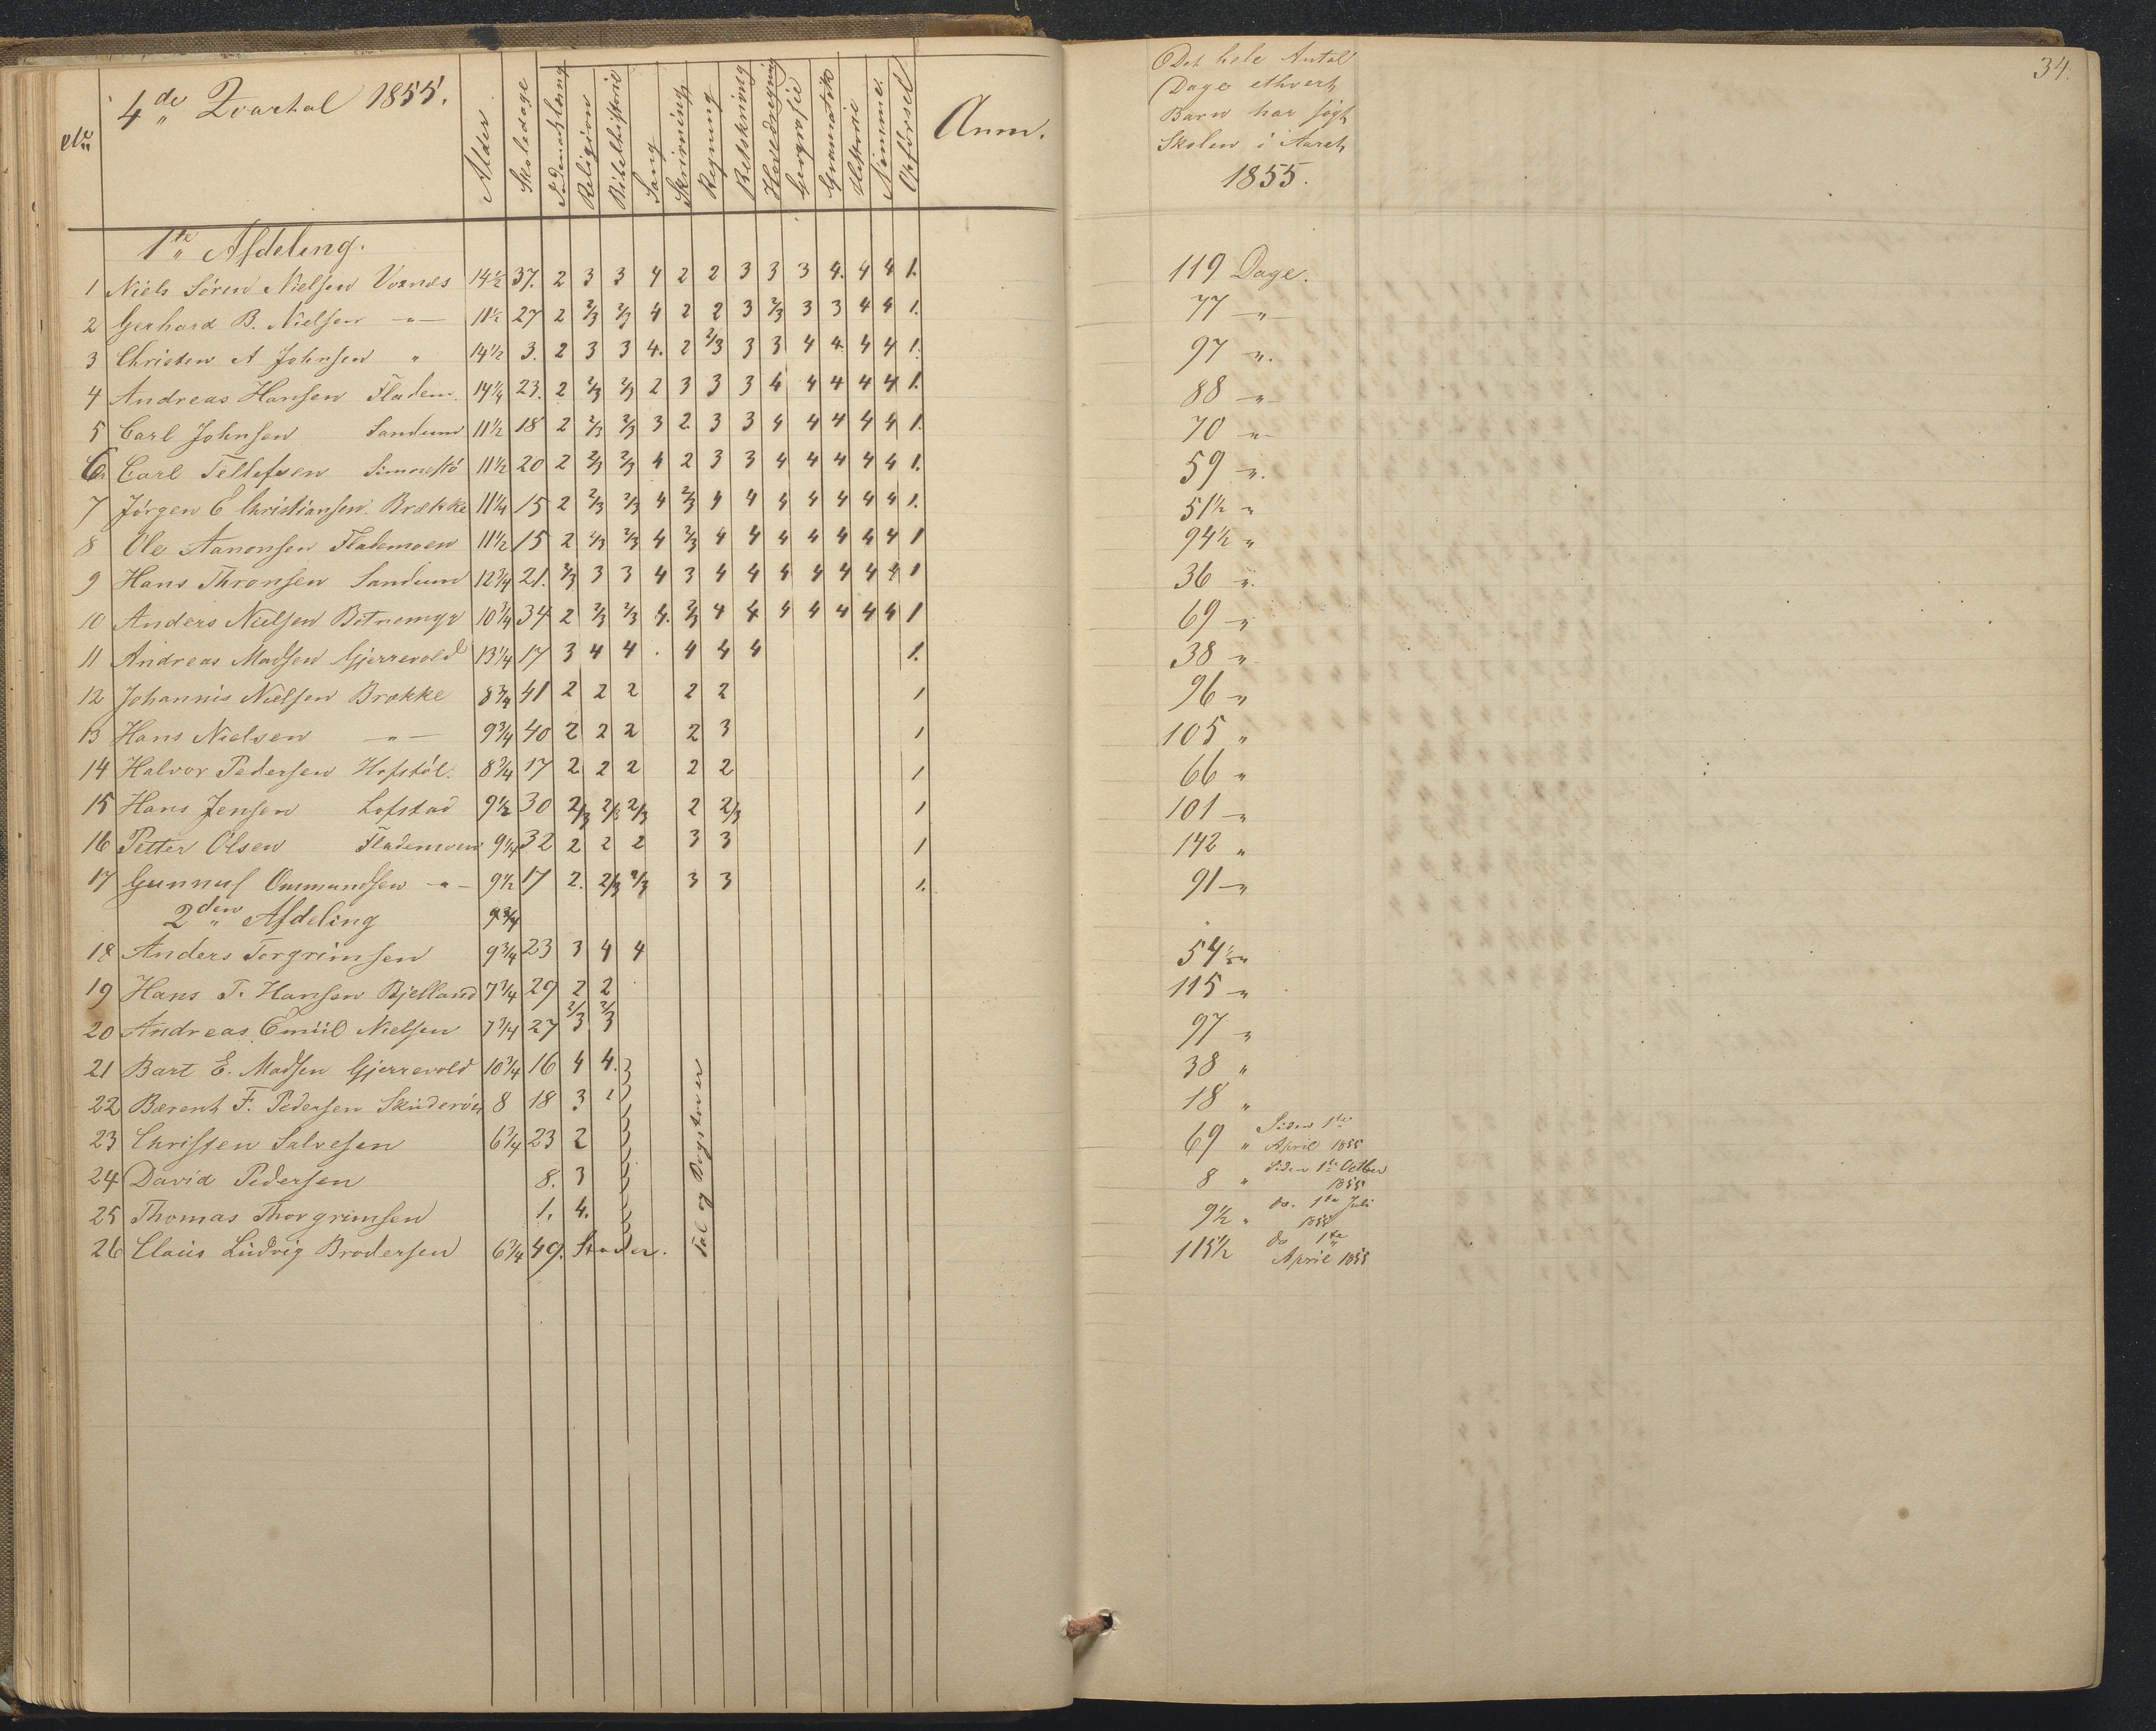 4de Qvartal 1855.
No
Alder
Skoledage
Indenadslæsning
Religion
Bibelhistorie
Sang
Skrivning
Regning
Retskrivning
Hovedregning
Geografie
Gramatik
Historie
Nummer
Opførsel
Anm.
1te Afdeling.
1 Niels Sören Nielsen Voxnes 14½ 37. 2 3 3 4 2 2 3 3 3 4. 4 4 1.
2 Gerhard B. Nielsen -"- 11½ 27 2 2/3 2/3 4 2 2 3 2/3 3 3 4 4 1.
3 Christen A Johnsen " 14½ 3. 2 3 3 4. 2 2/3 3 3 4 4 4 4 1.
4 Andreas Hansen Fladem. 14¼ 23. 2 2/3 2/3 2 3 3 3 4 4 4 4 4 1.
5 Carl Johnsen Sandum 11½ 18 2 2/3 2/3 3 2 3 3 4 4 4 4 4 1.
6 Carl Tellefsen Simonstö 11½ 20 2 2/3 2/3 4 2 3 3 4 4 4 4 4 1.
7 Jörgen E Christiansen. Brække 11¼ 15 2 2/3 2/3 4 2/3 4 4 4 4 4 4 4 1.
8 Ole Aanonsen Flademoen 11½ 15 2 2/3 2/3 4 2/3 4 4 4 4 4 4 4 1
9 Hans Thronsen Sandum 12¾ 21. 2/3 3 3 4 3 4 4 4 4 4 4 4 1
10 Anders Nielsen Botnemyr 10¾ 34 2 2/3 2/3 4. 2/3 4 4 4 4 4 4 4 1
11 Andreas Madsen Gjerrevold 13¼ 17 3 4 4 . 4 4 4 1.
12 Johannis Nielsen Brække 8¾ 41 2 2 2 2 2 1
13 Hans Nielsen -"- 9¾ 40 2 2 2 2 3 1
14 Halvor Pedersen Hofstöl. 8¾ 17 2 2 2 2 2 1
15 Hans Jensen Lofstad 9½ 30 2/3 2/3 2/3 2 2/3 1
16 Petter Olsen Flademoen 9¼ 32 2 2 2 3 3 1
17 Gunnuf Ommundsen -"- 9½ 17 2. 2/3 2/3 3 3 1.
2den Afdeling 9¾
18 Anders Torgrimsen 9¾ 23 3 4 4
19 Hans T. Hansen Bjelland 7¾ 29 2 2
20 Andreas Emiil Nielsen 7¾ 27 2/3 2/3
21 Bart E. Madsen Gjerrevold 10¾ 16 4 4.
22 Bærent F. Pedersen 8 18 3
23 Christen Salvesen 6¾ 23 2
24 David Pedersen 8. 3
25 Thomas Thorgrimsen 1. 4.
26 Claüs Lüdvig Brodersen 6¾ 49. Staver.
Tal og Bogstaver
34.
Det hele Antal
Dage ethvert
Barn har sögt
Skolen i Aaret
1855.
119 Dage.
77 -"-
97 ".
88 -"-
70 -"-
59 -".
51½ "
94½ "
36 ".
69 -"
38 "
96 "
105 "
66 "
101 -"
142 "
91 -"
54½ "
115 -"
97 -"
38 "
18 "
69 " Siden 1te April 1855
8 " Siden 1te Octber 1855
9½ " do. 1te Juli 1855
115½ do 1te April 1855